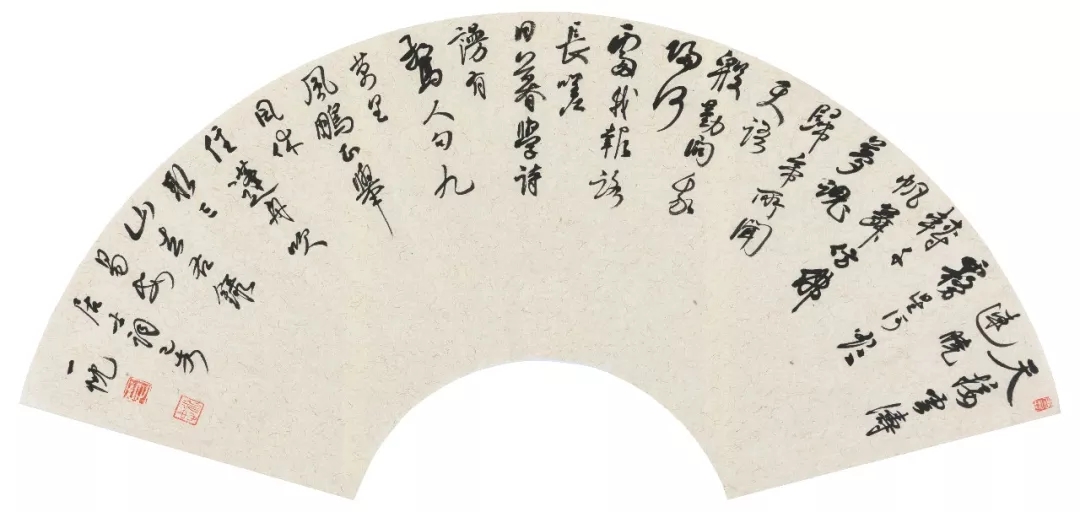 天接雲濤
連曉
霧星河欲
轉千
帆舞仿佛
夢魂
歸帝所聞
天語
殷勤問我
歸何
處我報路
長嗟
日暮學詩
謾有
驚人句九
萬里
風鵬正舉
風休
住蓬舟吹
取三
山去右錄
易安
居士詞己亥
一忱